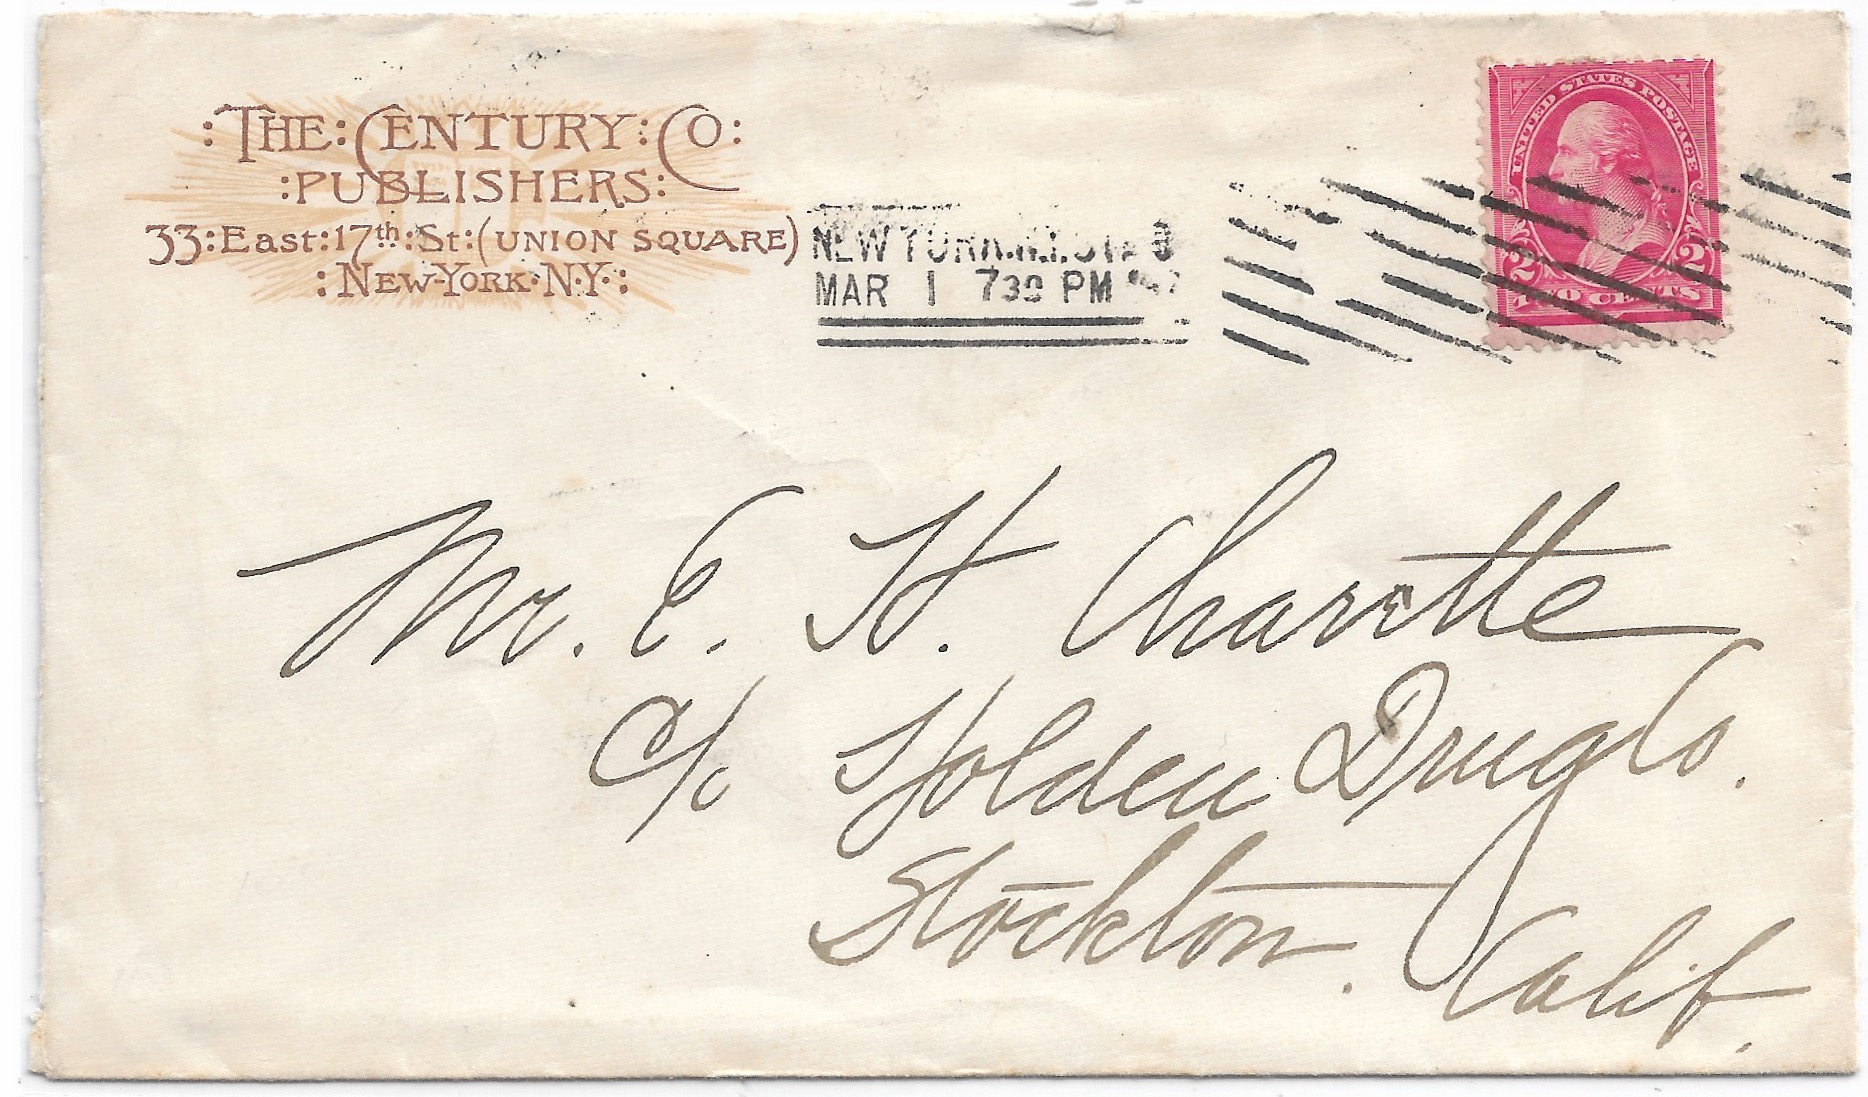 :THE:CENTURY:CO:
:PUBLISHERS:
33:East:17th:St:(UNION SQUARE)
:NEW-YORK·N·Y·:
NEW YORK.N.Y.
MAR 1 730 PM
UNITED STATES POSTAGE
2 2
TWO CENTS
Mr. E. H. Charette
c/o Holden Drug Co.
Stockton.
Calif.